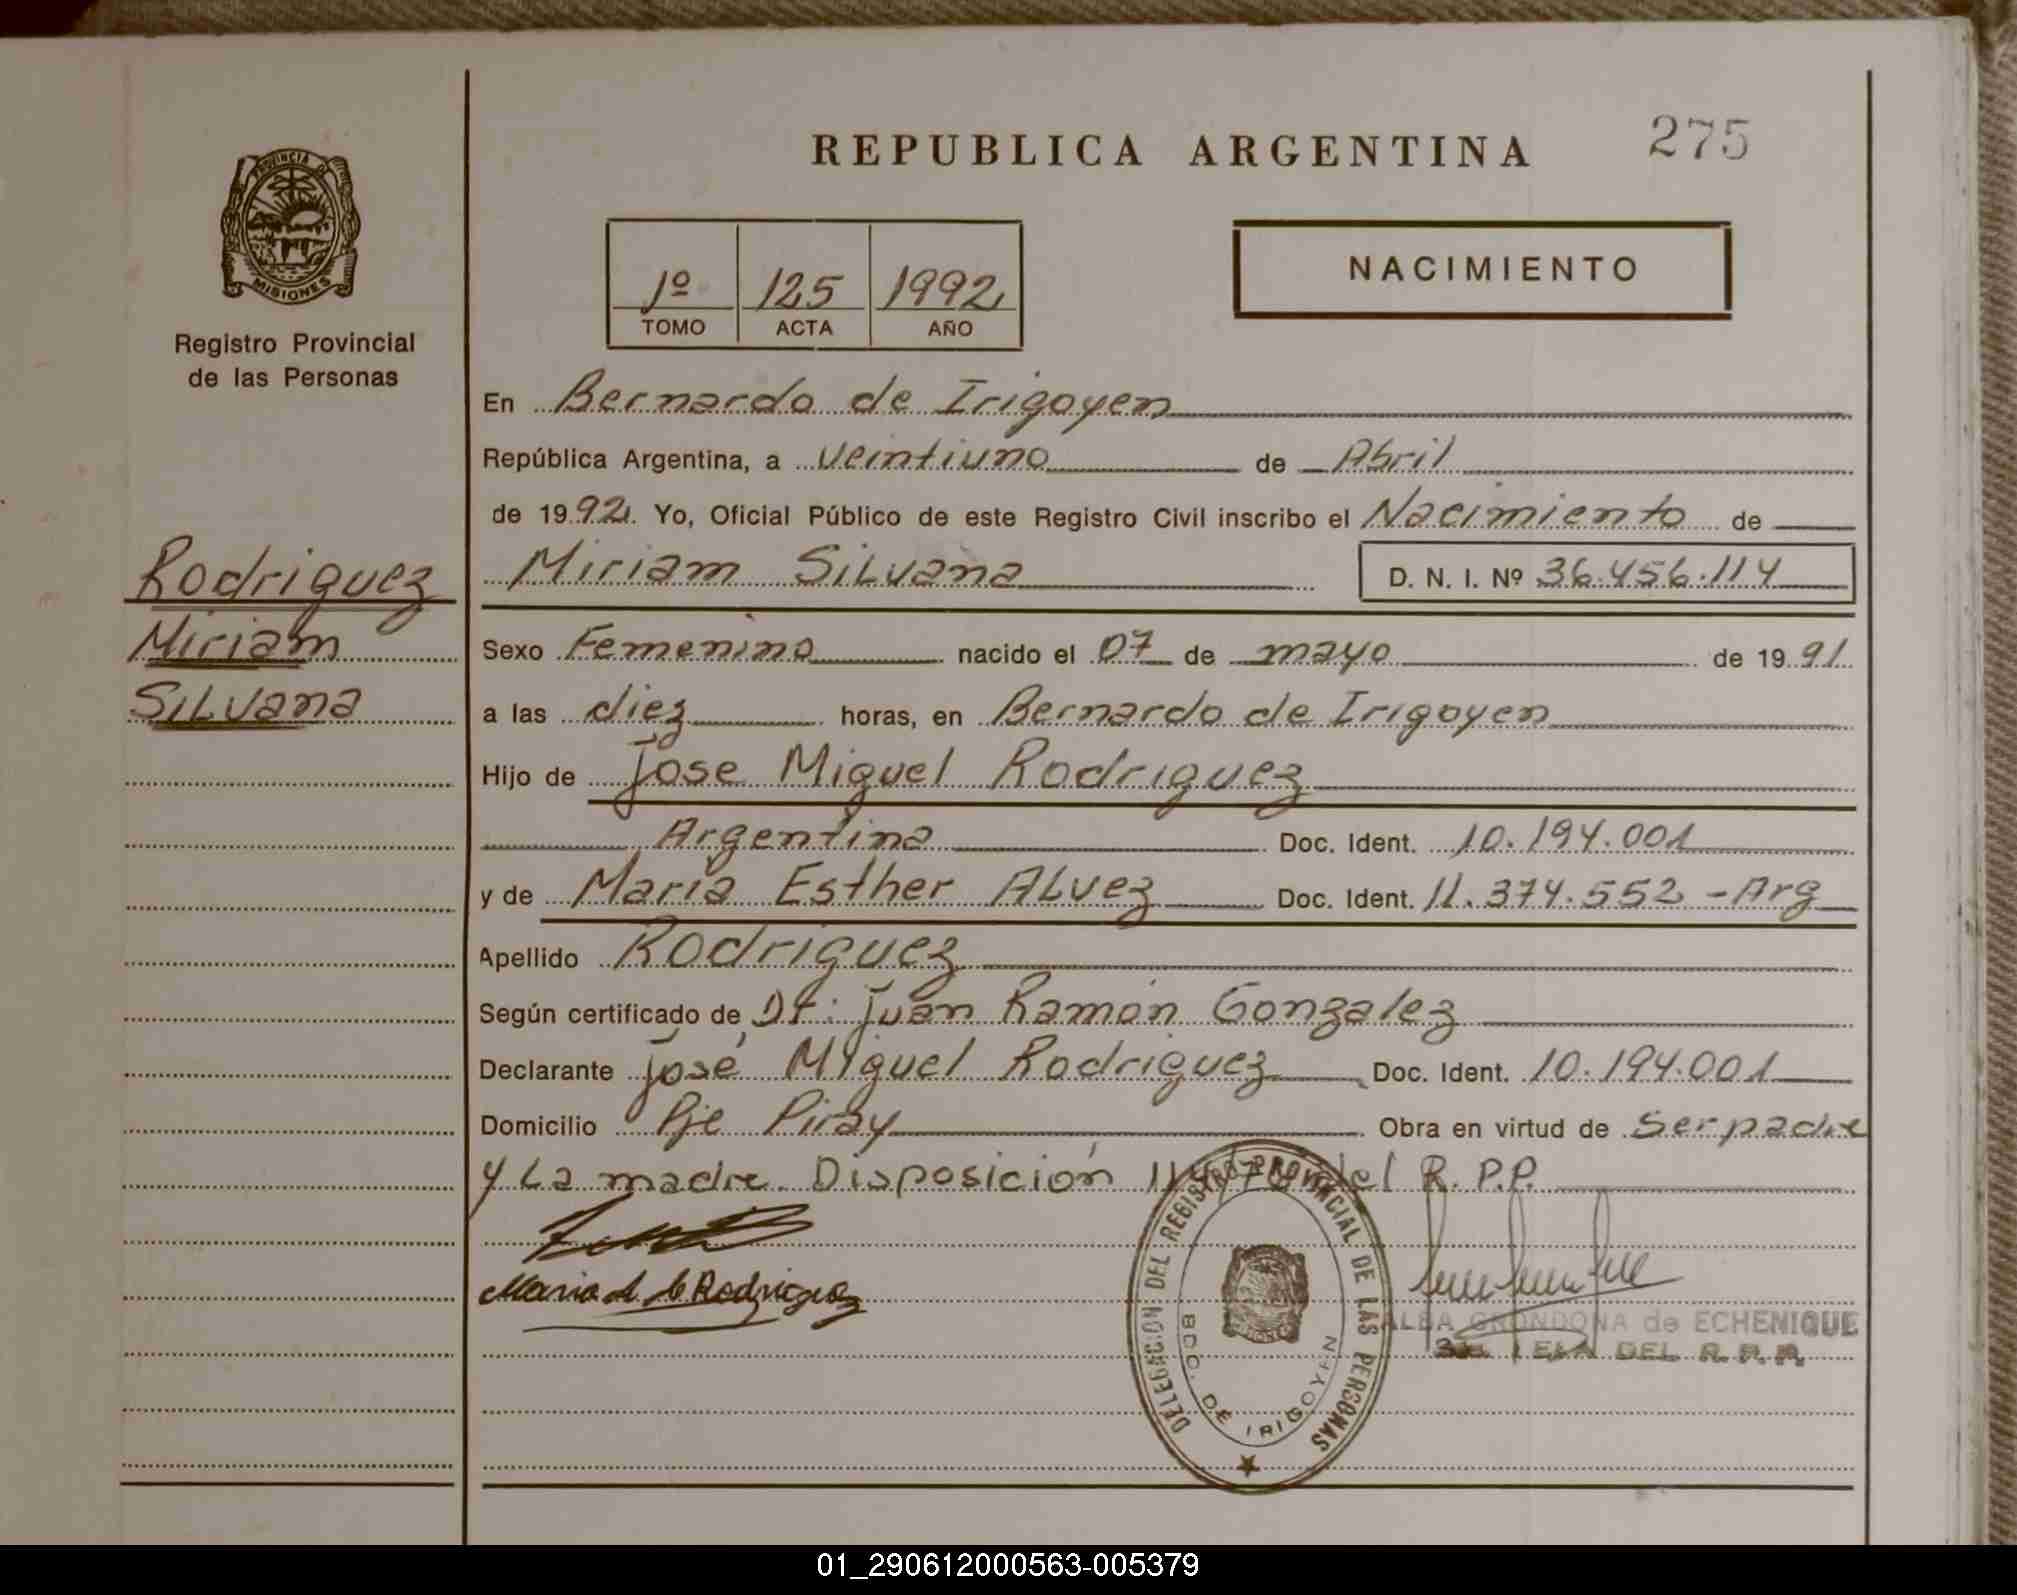 REPUBLICA ARGENTINA
275
PROVINCIA
MISIONES
Registro Provincial
de las Personas
1º 125 1992
TOMO ACTA AÑO
NACIMIENTO
En Bernardo de Irigoyen
República Argentina, a veintiuno de Abril
de 1992. Yo, Oficial Público de este Registro Civil inscribo el Nacimiento de
Miriam Silvana D. N. I. Nº 36.456.114
Rodriguez
Miriam
Silvana
Sexo Femenino nacido el 07 de mayo de 1991
a las diez horas, en Bernardo de Irigoyen
Hijo de Jose Miguel Rodriguez
Argentina Doc. Ident. 10.194.001
y de Maria Esther Alvez Doc. Ident. 11.374.552 - Arg
Apellido Rodriguez
Según certificado de Dr. Juan Ramón Gonzalez
Declarante José Miguel Rodriguez Doc. Ident. 10.194.001
Domicilio Pje Piray Obra en virtud de ser padre
y la madre. Disposición del R.P.P.
Maria A. de Rodriguez
DELEGACION DEL REGISTRO PROVINCIAL DE LAS PERSONAS
BDO. DE IRIGOYEN
ALBA GRONDONA de ECHENIQUE
DEL R.P.P.
01_290612000563-005379